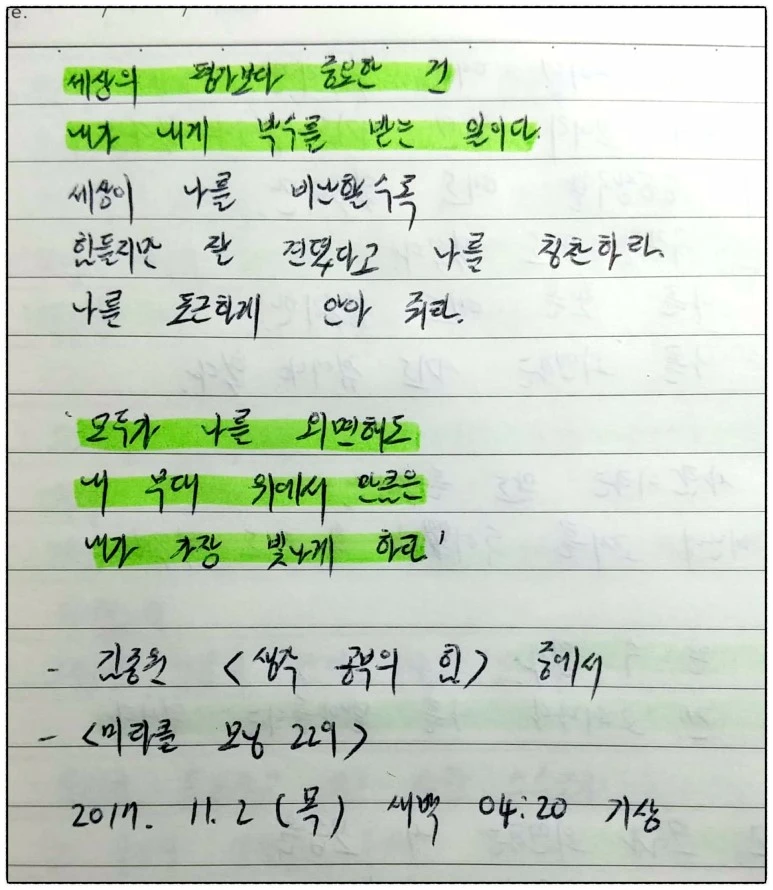 e. / /
세상의 평가보다 중요한 건
내가 내게 박수를 받는 일이다.
세상이 나를 비난할수록
힘들지만 잘 견뎠다고 나를 칭찬하라.
나를 포근하게 안아 줘라.
모두가 나를 외면해도
내 무대 위에서 만큼은
내가 가장 빛나게 하라!
- 김종원 <생각 공부의 힘> 중에서
- <미라클 모닝 229>
2017. 11. 2 (목) 새벽 04:20 기상